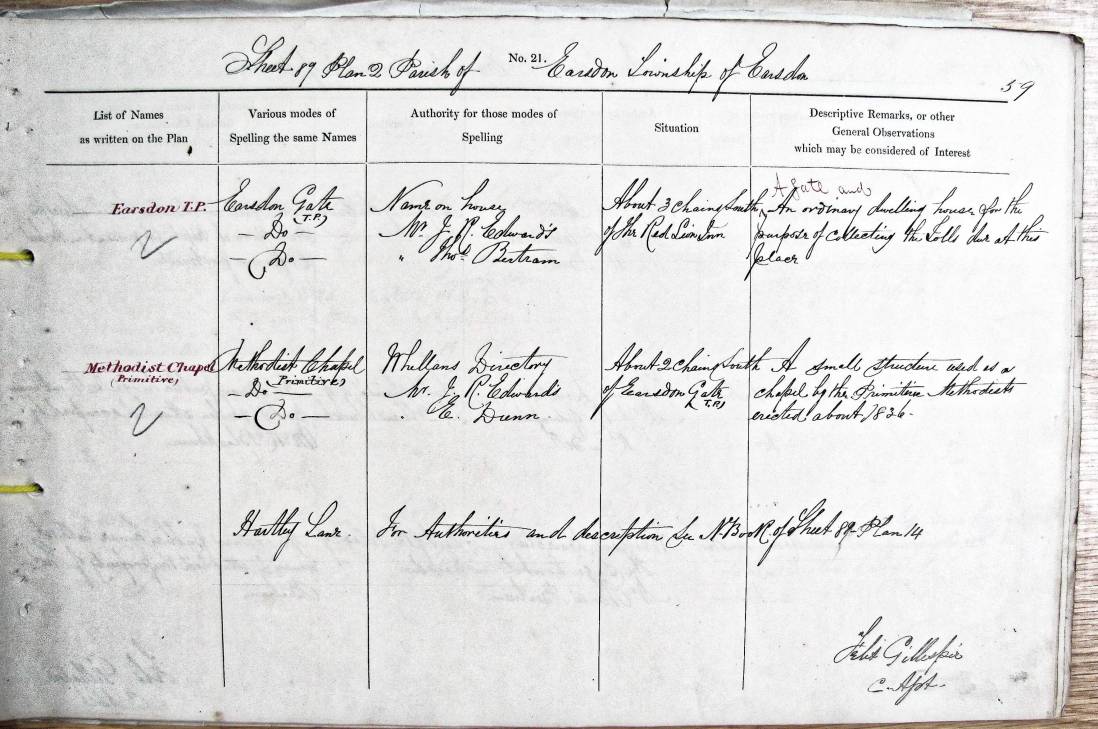 Sheet 89 Plan 2 Parish of No. 21. Earsdon Township of Earsdon
59
List of Names
as written on the Plan
Various modes of
Spelling the same Names
Authority for those modes of
Spelling
Situation
Descriptive Remarks, or other
General Observations
which may be considered of Interest
Earsdon T.P.
2
Earsdon Gate
(T.P.)
— Do —
— Do —
Name on house
Mr. J. R. Edwards
" Thos. Bertram
About 3 chains South
of the Red Lion Inn
A gate and
An ordinary dwelling house for the
purpose of collecting the Tolls due at this
place
Methodist Chapel
(Primitive)
2
Methodist Chapel
(Primitive)
— Do —
— Do —
Whellans Directory
Mr. J. R. Edwards
" E. Dunn
About 2 chains South
of Earsdon Gate
(T.P.)
A small structure used as a
chapel by the Primitive Methodists
erected about 1836.
Hartley Lane. For Authorities and description See N. Book of Sheet 89 Plan 14
Gillespie